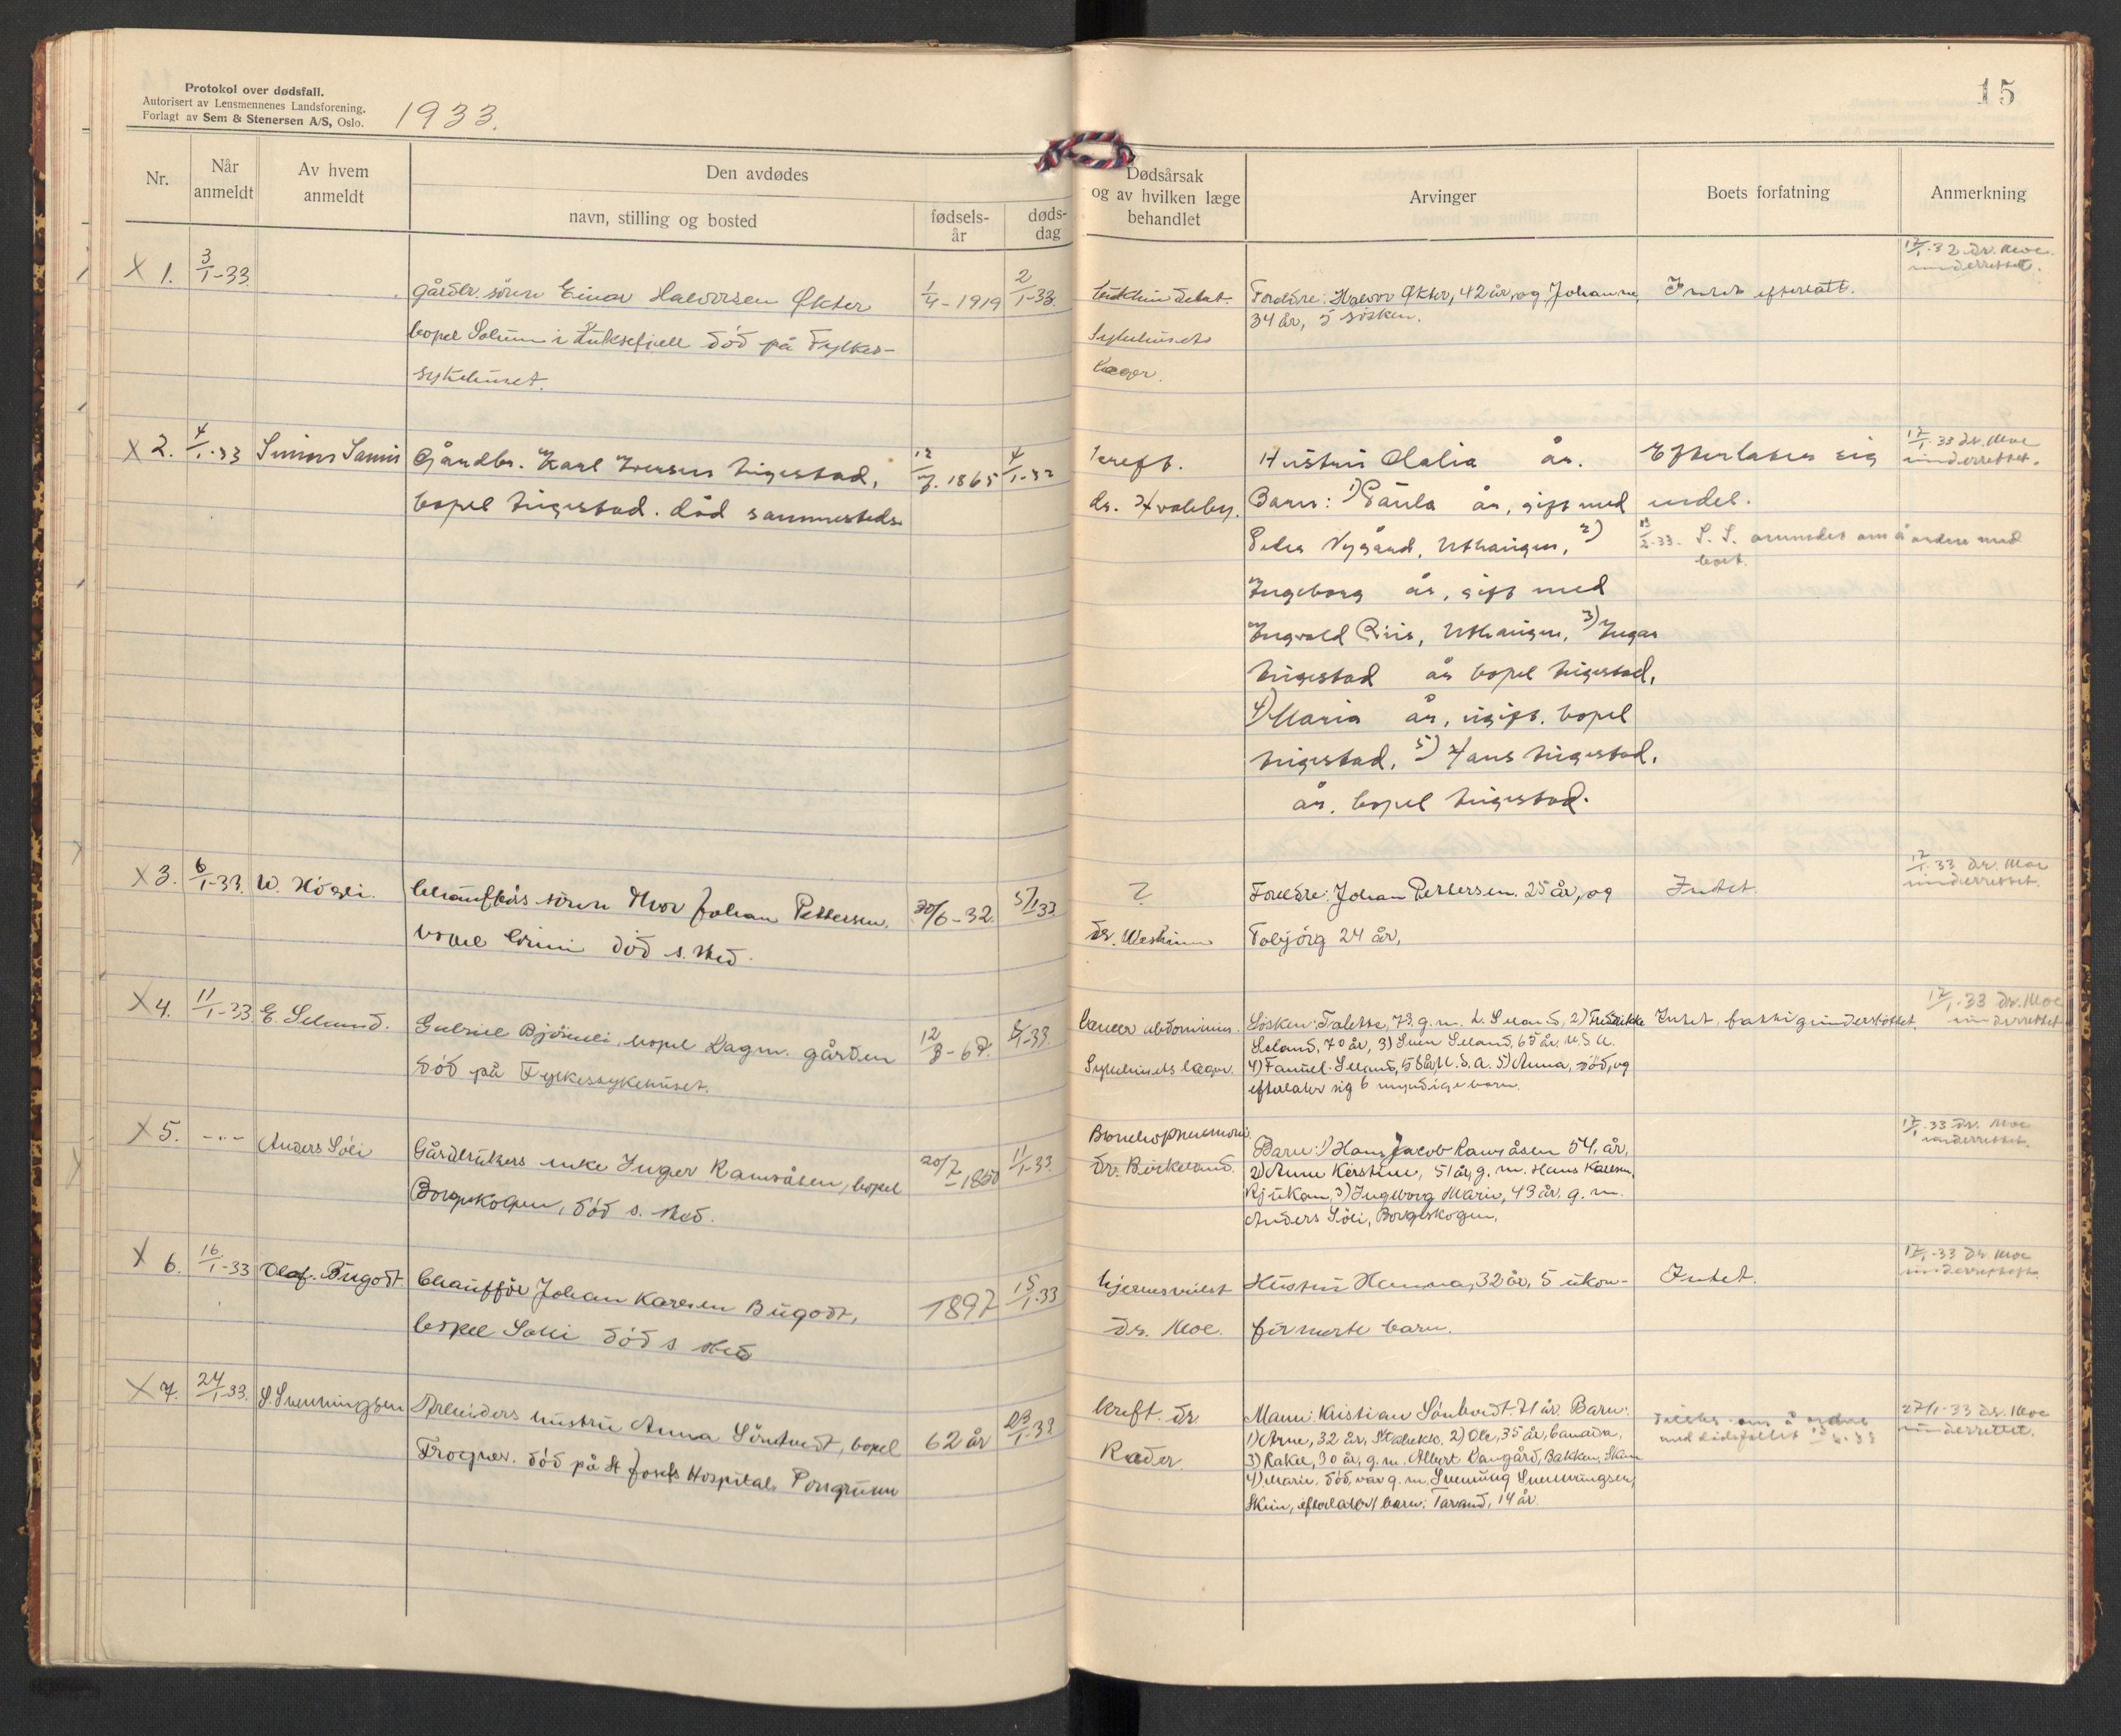 Protokol over dødsfall.
Autorisert av Lensmennenes Landsforening.
Forlagt av Sem & Stenersen A/S, Oslo.
1933.
15
Nr.
Når anmeldt
Av hvem anmeldt
Den avdødes
navn, stilling og bosted
fødsels-år
døds-dag
Dødsårsak og av hvilken læge behandlet
Arvinger
Boets forfatning
Anmerkning
X 1. 3/1-33
Gårdbr. sönn Einar Halvorsen Økter
bopel Solum i Luksefjell död på Fylkes-
sykehuset.
1/4-1919
2/1-33.
Sykehusets
læger.
Foreldre: Halvor Økter, 42 år, og Johanne,
34 år, 5 søsken.
Intet efterlatt.
17/1-32 dr. Moe
underrettet.
X 2. 4/1-33
Gårdbr. Karl Iversen
bopel død sammesteds.
12/7. 1865
4/1-33
Kreft.
Hustru Olalia år.
Barn: 1) Paula år, gift med
Peder Nygård,
2)
Ingeborg år, gift med
Ingvald Riis, 3)
år bopel
4) Maria år, ugift. bopel
5) Hans
år. bopel
Efterlater sig
endel.
13/2-33. S. S. anmodet om å ordne med
boet.
17/1-33 dr. Moe
underrettet.
X 3. 6/1-33. W. Högli.
Chaufförs sönn Thor Johan Pettersen,
bopel död s. sted.
30/6-32
5/1 33
?
dr.
Foreldre: Johan Pettersen. 25 år, og
Tobjörg 24 år,
Intet.
17/1-33 dr. Moe
underrettet.
X 4. 11/1-33. E. Seland.
Gabriel bopel gården
död på Fylkessykehuset.
12/3-67.
/1-33.
Cancer abdominis.
Sykehusets læger.
Sösken: Talette, 73. g.m. L. Seland, 2) Fredrikke
Seland, 70 år, 3) Sven Seland, 65 år. U.S.A.
4) Fanuel Seland, 58 år, U.S.A. 5) Anna, död, og
efterlater sig 6 myndige barn.
Intet, fattigunderstöttet,
17/1-33 dr. Moe
underrettet
X 5. -"- Anders Söli
Gårdbrukers enke Inger Ramsåsen, bopel
Borgeskogen, död s. sted.
20/7-1850
11/1-33.
Bronchopneumoni.
Dr. Birkeland.
Barn: 1) Hans Jacob Ramsåsen 54. år,
2) Anne Kirstine, 51 år, g. m. Hans Karlsen,
Rjukan, 3) Ingeborg Marie, 43 år, g. m.
Anders Söli, Borgeskogen.
17/1-33 dr. Moe
underrettet.
X 6. 16/1-33 Olaf. Bugodt.
Chaufför Johan Karlsen Bugodt,
bopel Solli död s sted
1897
15/1-33
Hjernesvulst
Dr. Moe.
Hustru Hanna, 32 år, 5 ukon-
firmerte barn.
Intet.
17/1-33 dr. Moe
underrettet.
X 7. 24/1-33. S. Svenningsen
Arbeiders hustru Anna Söntvedt, bopel
Frogner. död på St Josefs Hospital. Porsgrunn
62 år
23/1-33
Kreft. dr
Rader.
Mann: Kristian Söntvedt. 71 år. Barn:
1) Arne, 32 år, 2) Ole, 35 år, Canada,
3) Rakel, 30 år, g.m. Albert Vangård, Bakken, Skien
4) Marie. död, var g.m. Svenning Svenningsen,
Skien, efterlater 1 barn: Tarand, 14 år.
om å ordne
med
27/1-33 dr. Moe
underrettet.